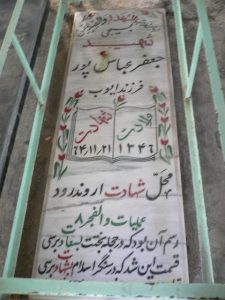 شهید
جعفر عباس پور
فرزند ایوب
ولادت
۱۳۴۶
شهادت
۶۴,۱۱,۲۱
محل شهادت اروندرود
عملیات والفجر ۸
رسم آن بود که در حجله بخت بسعادت برسی
قسمت این شد که در سنگر اسلام بشهادت برسی